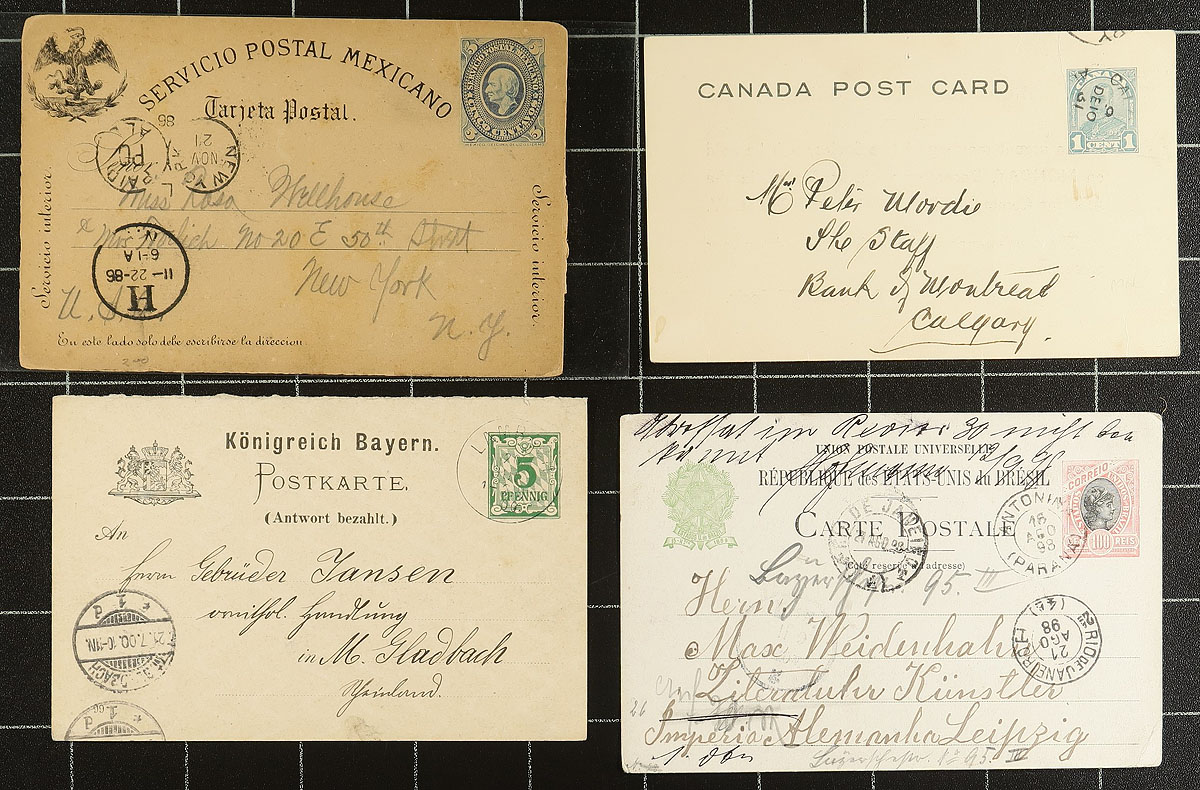 SERVICIO POSTAL MEXICANO
Tarjeta Postal.
Servicio interior.
Servicio interior.
NEW YORK
NOV
21
86
PAID
ALL
Miss Rosa Wellhouse
No 20 E 50th Street
New York
N. Y.
H
11-22-86
6-1A
N.Y.
U. S.
En este lado solo debe escribirse la direccion.
CANADA POST CARD
1 CENT 1
CAL
9
DE 10
31
Mr Peter Wordie
The Staff
Bank of Montreal
Calgary.
Königreich Bayern.
POSTKARTE.
(Antwort bezahlt.)
5
PFENNIG
An
Herrn Gebrüder Jansen
ornithol. Handlung
in M. Gladbach
Rheinland.
21.7.00.10-11N.
UNION POSTALE UNIVERSELLE
RÉPUBLIQUE des ÉTATS-UNIS du BRÉSIL
CARTE POSTALE
(Coté reservé à l'adresse)
CORREIO
100 REIS
ANTONINA
16
AGO
98
(PARANA)
RIO DE JANEIRO
21 AGO 98
Herrn
Max Weidenhahn
Literatuhr Künstler
Imperia Alemanha Leipzig
2ª RIO DE JANEIRO
21
AGO
98
(4ª)